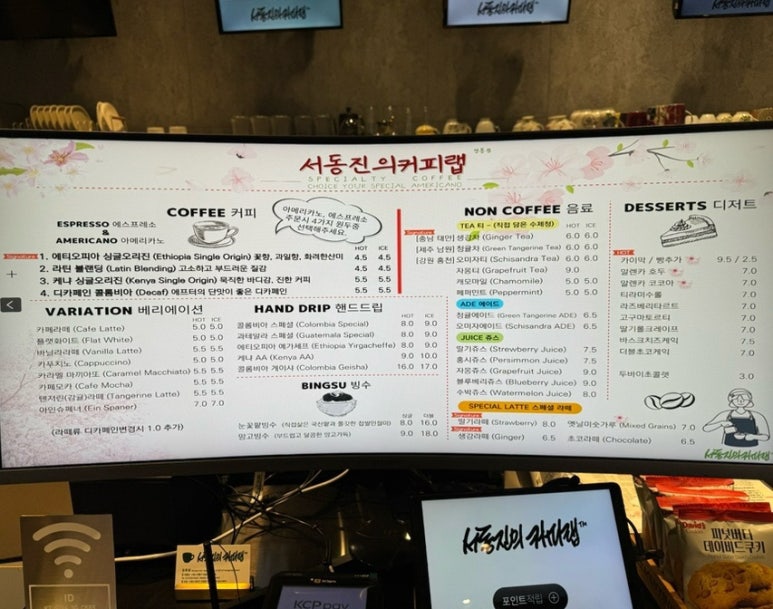 서동진의커피랩
서동진의커피랩
서동진의커피랩
서동진의커피랩
SPECIALTY COFFEE
CHOICE YOUR SPECIAL AMERICANO
COFFEE 커피
아메리카노, 에스프레소
주문시 4가지 원두중
선택해주세요.
ESPRESSO 에스프레소
&
AMERICANO 아메리카노
HOT ICE
Signature
1. 에티오피아 싱글오리진 (Ethiopia Single Origin) 꽃향, 과일향, 화려한산미 4.5 4.5
2. 라틴 블랜딩 (Latin Blending) 고소하고 부드러운 질감 4.5 4.5
3. 케냐 싱글오리진 (Kenya Single Origin) 묵직한 바디감, 진한 커피 5.5 5.5
4. 디카페인 콜롬비아 (Decaf) 에프터의 단맛이 좋은 디카페인 5.5 5.5
VARIATION 베리에이션
HOT ICE
카페라떼 (Cafe Latte) 5.0 5.0
플랫화이트 (Flat White) 5.0 5.0
바닐라라떼 (Vanilla Latte) 5.5 5.5
카푸치노 (Cappuccino) 5.0 5.0
카라멜 마끼아또 (Caramel Macchiato) 5.5 5.5
카페모카 (Cafe Mocha) 5.5 5.5
텐저린(감귤)라떼 (Tangerine Latte) 5.5 5.5
아인슈페너 (Ein Spaner) 7.0 7.0
(라떼류 디카페인변경시 1.0 추가)
HAND DRIP 핸드드립
HOT ICE
콜롬비아 스페셜 (Colombia Special) 8.0 9.0
과테말라 스페셜 (Guatemala Special) 8.0 9.0
에티오피아 예가체프 (Ethiopia Yirgacheffe) 8.0 9.0
케냐 AA (Kenya AA) 9.0 10.0
콜롬비아 게이샤 (Colombia Geisha) 16.0 17.0
BINGSU 빙수
싱글 더블
눈꽃팥빙수 8.0 16.0
망고빙수 (부드럽고 달콤한 망고가득) 9.0 18.0
NON COFFEE 음료
TEA 티 - (직접 담은 수제청)
HOT ICE
Signature
[충남 태안] 생강차 (Ginger Tea) 6.0 6.0
[제주 남원] 청귤차 (Green Tangerine Tea) 6.0 6.0
[강원 홍천] 오미자티 (Schisandra Tea) 6.0 6.0
자몽티 (Grapefruit Tea) 9.0
캐모마일 (Chamomile) 5.0 5.0
페퍼민트 (Peppermint) 5.0 5.0
ADE 에이드
청귤에이드 (Green Tangerine ADE) 6.5
오미자에이드 (Schisandra ADE) 6.5
JUICE 쥬스
딸기쥬스 (Strewberry Juice) 7.5
홍시쥬스 (Persimmon Juice) 7.5
자몽쥬스 (Grapefruit Juice) 9.0
블루베리쥬스 (Blueberry Juice) 9.0
수박쥬스 (Watermelon Juice) 8.0
SPECIAL LATTE 스페셜 라떼
Signature
딸기라떼 (Strawberry) 8.0 옛날미숫가루 (Mixed Grains) 7.0
Signature
생강라떼 (Ginger) 6.5 초코라떼 (Chocolate) 6.5
DESSERTS 디저트
HOT
가이막 / 빵추가 9.5 / 2.5
알랜카 호두
알랜카 코코아
티라미수롤
라즈베리타르트
고구마토르티
딸기롤크레이프
바스크치즈케익 7.5
더블초코케익 7.0
두바이초콜렛 3.0
서동진의커피랩
서동진의 커피랩™
포인트적립
KCP pay
David's
피넛버터
데이비드쿠키